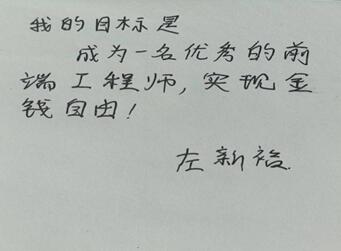 我的目标是
成为一名优秀的前
端工程师,实现金
钱自由!
左新裕